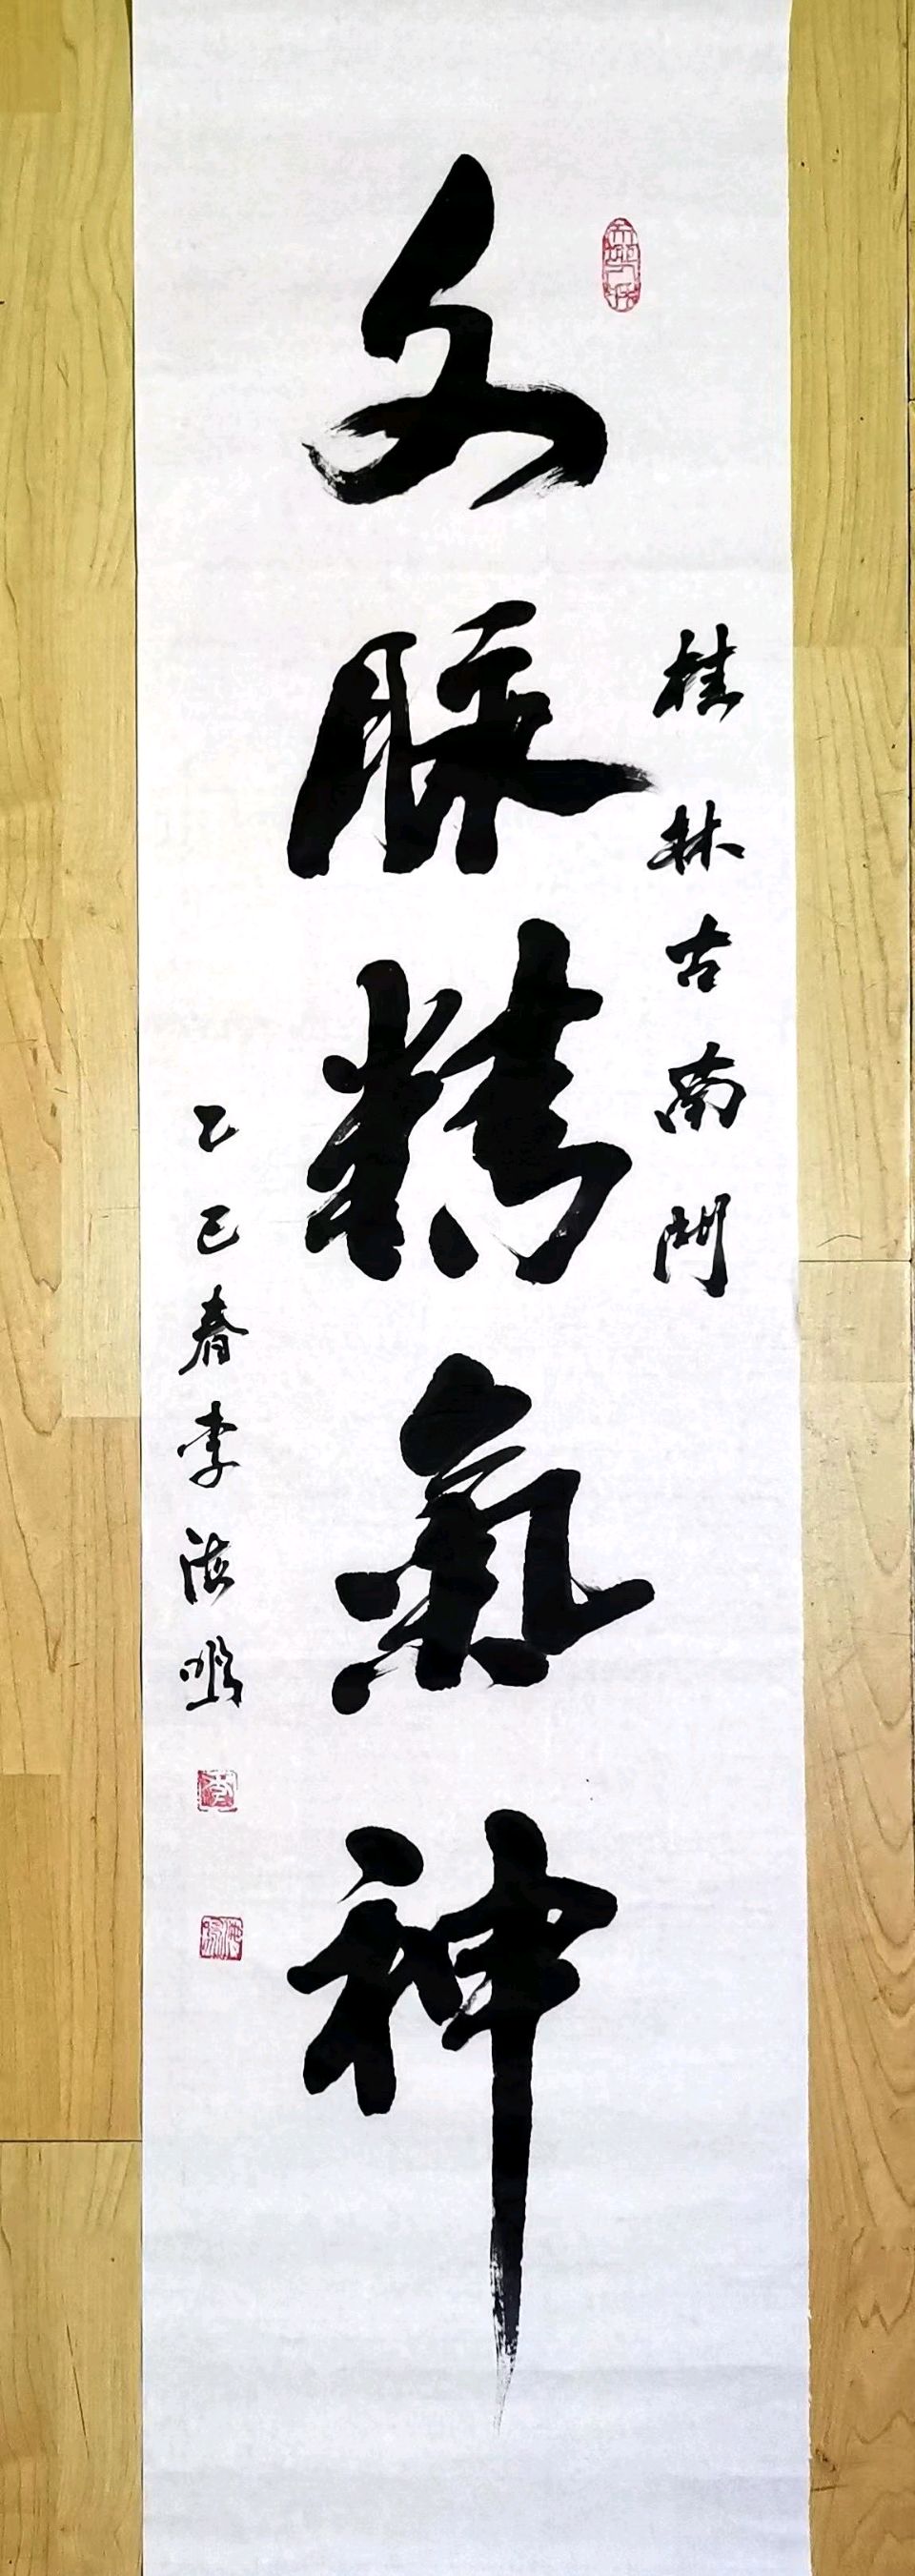 桂林古南門
文脉精氣神
乙巳春李海鳴